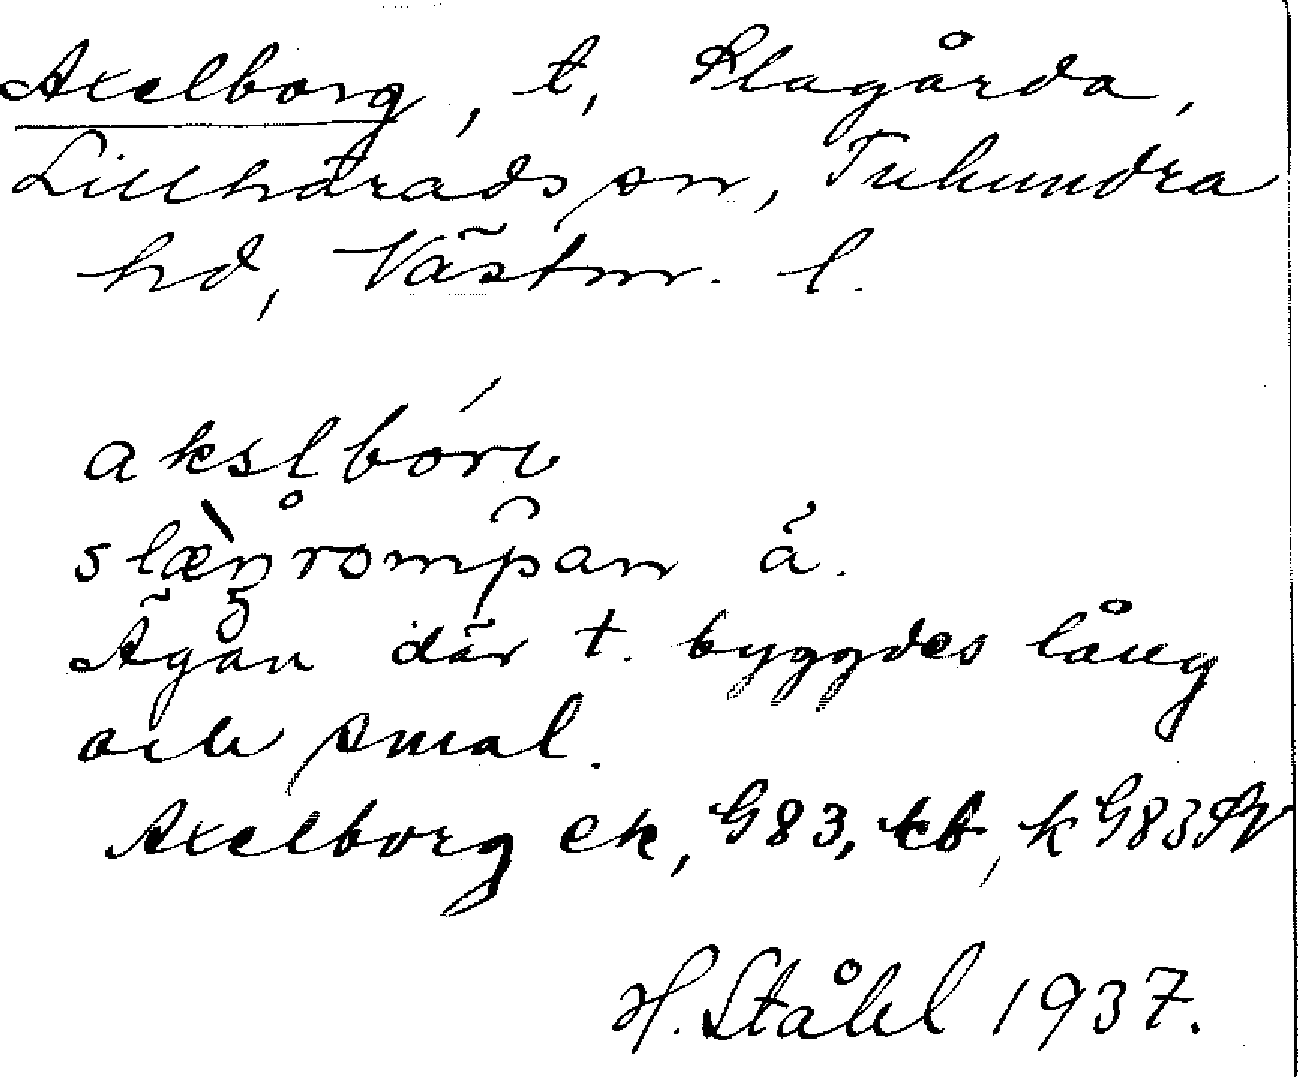 Axelborg, t, Klagårda,
Lillhärads sn, Tuhundra
hd, Västm. l.
akslbórv
slæ̀ŋrompan ä.
Ägan där t. byggdes lång
och smal.
Axelborg ek, G83, k G83
H. Ståhl 1937.